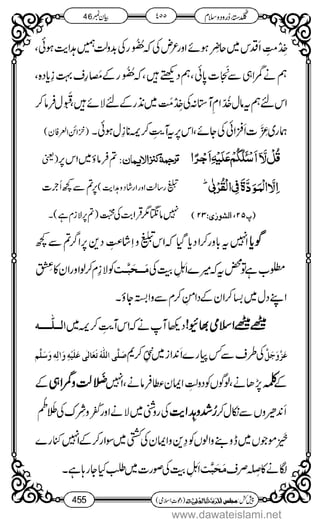 بیان نمبر 46
٤٥٥
گلدستۂ دُرود و سلام
خِدْمتِ اَقْدَس میں حاضِر ہوئے اور عَرْض کی کہ حُضُور کی بدولت ہمیں ہدایت ہوئی،
ہم نے گمراہی سے نَجات پائی، ہم دیکھتے ہیں، کہ حُضُور کے مَصارِف بہت زیادہ ہیں،
اس لئے ہم یہ مال خُدّامِ آستانہ کی خِدْمت میں نَذْر کے لئے لائے ہیں، قَبول فرما کر
ہماری عِزّت اَفْزائی کی جائے، اس پر یہ آیتِ کریمہ نازِل ہوئی۔ (خزائن العرفان)
قُلْ لَّاۤ اَسْــٴَـلُكُمْ عَلَیْهِ اَجْرًا ترجمۂ کنزالایمان: تم فرماؤ میں اس پر (یعنی
اِلَّا الْمَوَدَّةَ فِی الْقُرْبٰىؕ تبلیغِ رسالت اور ارشاد و ہدایت) تم پر سے کچھ اُجرت
(پ ٢٥، الشوریٰ: ٢٣) نہیں مانگتا مگر قرابت کی محبت (تم پر لازم ہے)۔
گویا انہیں یہ باور کرا دیا گیا کہ اس تبلیغ و اِشاعتِ دین پر اگر تم سے کچھ
مطلوب ہے تو وہ محض یہ ہے کہ میرے اہلِ بیت کی مَحَبَّت کو لازِم کرلو اور ان کا عشق
اپنے دل میں بسا کر ان کے دامنِ کرم سے وابستہ ہو جاؤ۔
میٹھے میٹھے اسلامی بھائیو! دیکھا آپ نے کہ اس آیتِ کریمہ میں اللہ
عَزَّوَجَلَّ کی طرف سے کس پیارے انداز میں نبیِّ کریم صَلَّی اللهُ تَعَالٰی عَلَیْهِ وَاٰلِهٖ وَسَلَّم
کے کلمہ پڑھانے، لوگوں کو دولتِ ایمان عطا فرمانے، انہیں ضَلالَت و گمراہی کے
اَندھیروں سے نکال کر رُشد و ہدایت کی روشنی میں لانے اور کُفْر و شِرک کی تَلاطُم
خَیز موجوں میں ڈوبنے والوں کو دین و ایمان کی کشتی میں سوار کر کے انہیں کنارے
لگانے کا صِلہ صرف مَحَبَّتِ اہلِ بیت کی صورت میں طلب کیا جا رہا ہے۔
455
www.dawateislami.net